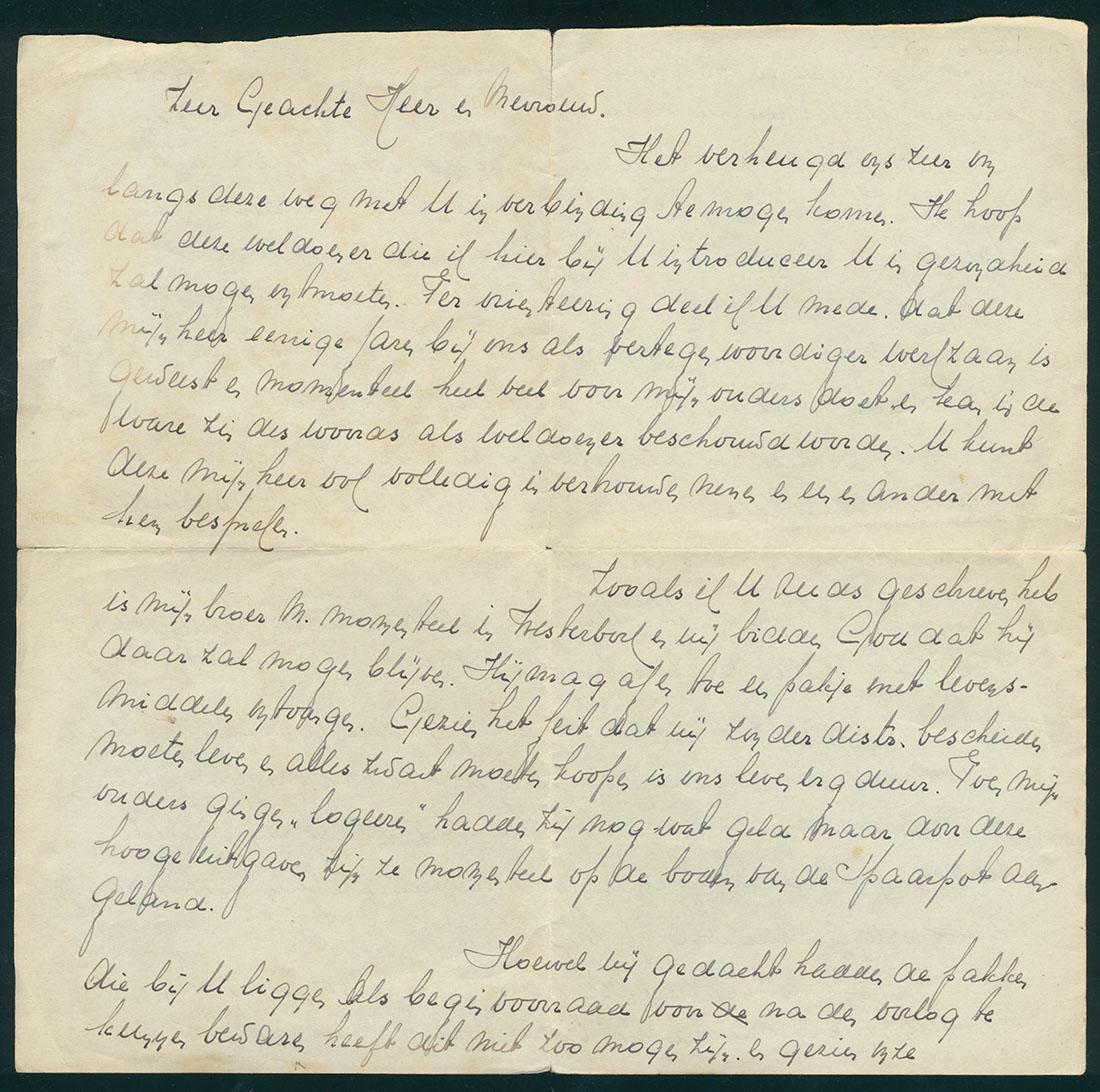 Zeer Geachte Heer en Mevrouw.
Het verheugd ons zeer om
langs deze weg met U in verbinding te mogen komen. Ik hoop
dat deze weldoener die ik hier bij U introduceer U in gezondheid
zal mogen ontmoeten. Ter orienteering deel ik U mede. dat deze
mijnheer eenige jaren bij ons als vertegenwoordiger werkzaam is
geweest en momenteel heel veel voor mijn ouders doet en kan in de
ware zin des woords als weldoener beschouwd worden. U kunt
deze mijnheer ook volledig in vertrouwen nemen en een en ander met
hem bespreken.
Zooals ik U reeds geschreven heb
is mijn broer M. momenteel in Westerbork en wij bidden God dat hij
daar zal mogen blijven. Hij mag af en toe een pakje met levens-
middelen ontvangen. Gezien het feit dat wij zonder distr. bescheiden
moeten leven en alles zwart moeten koopen is ons leven erg duur. Toen mijn
ouders gingen „logeeren" hadden zij nog wat geld maar door deze
hooge uitgaven zijn ze momenteel op de bodem van de Spaarpot aan-
geland.
Hoewel wij gedacht hadden de pakken
die bij U liggen als begin voorraad voor de na den oorlog te
kunnen bewaren heeft dit niet zoo mogen zijn. en gezien onze